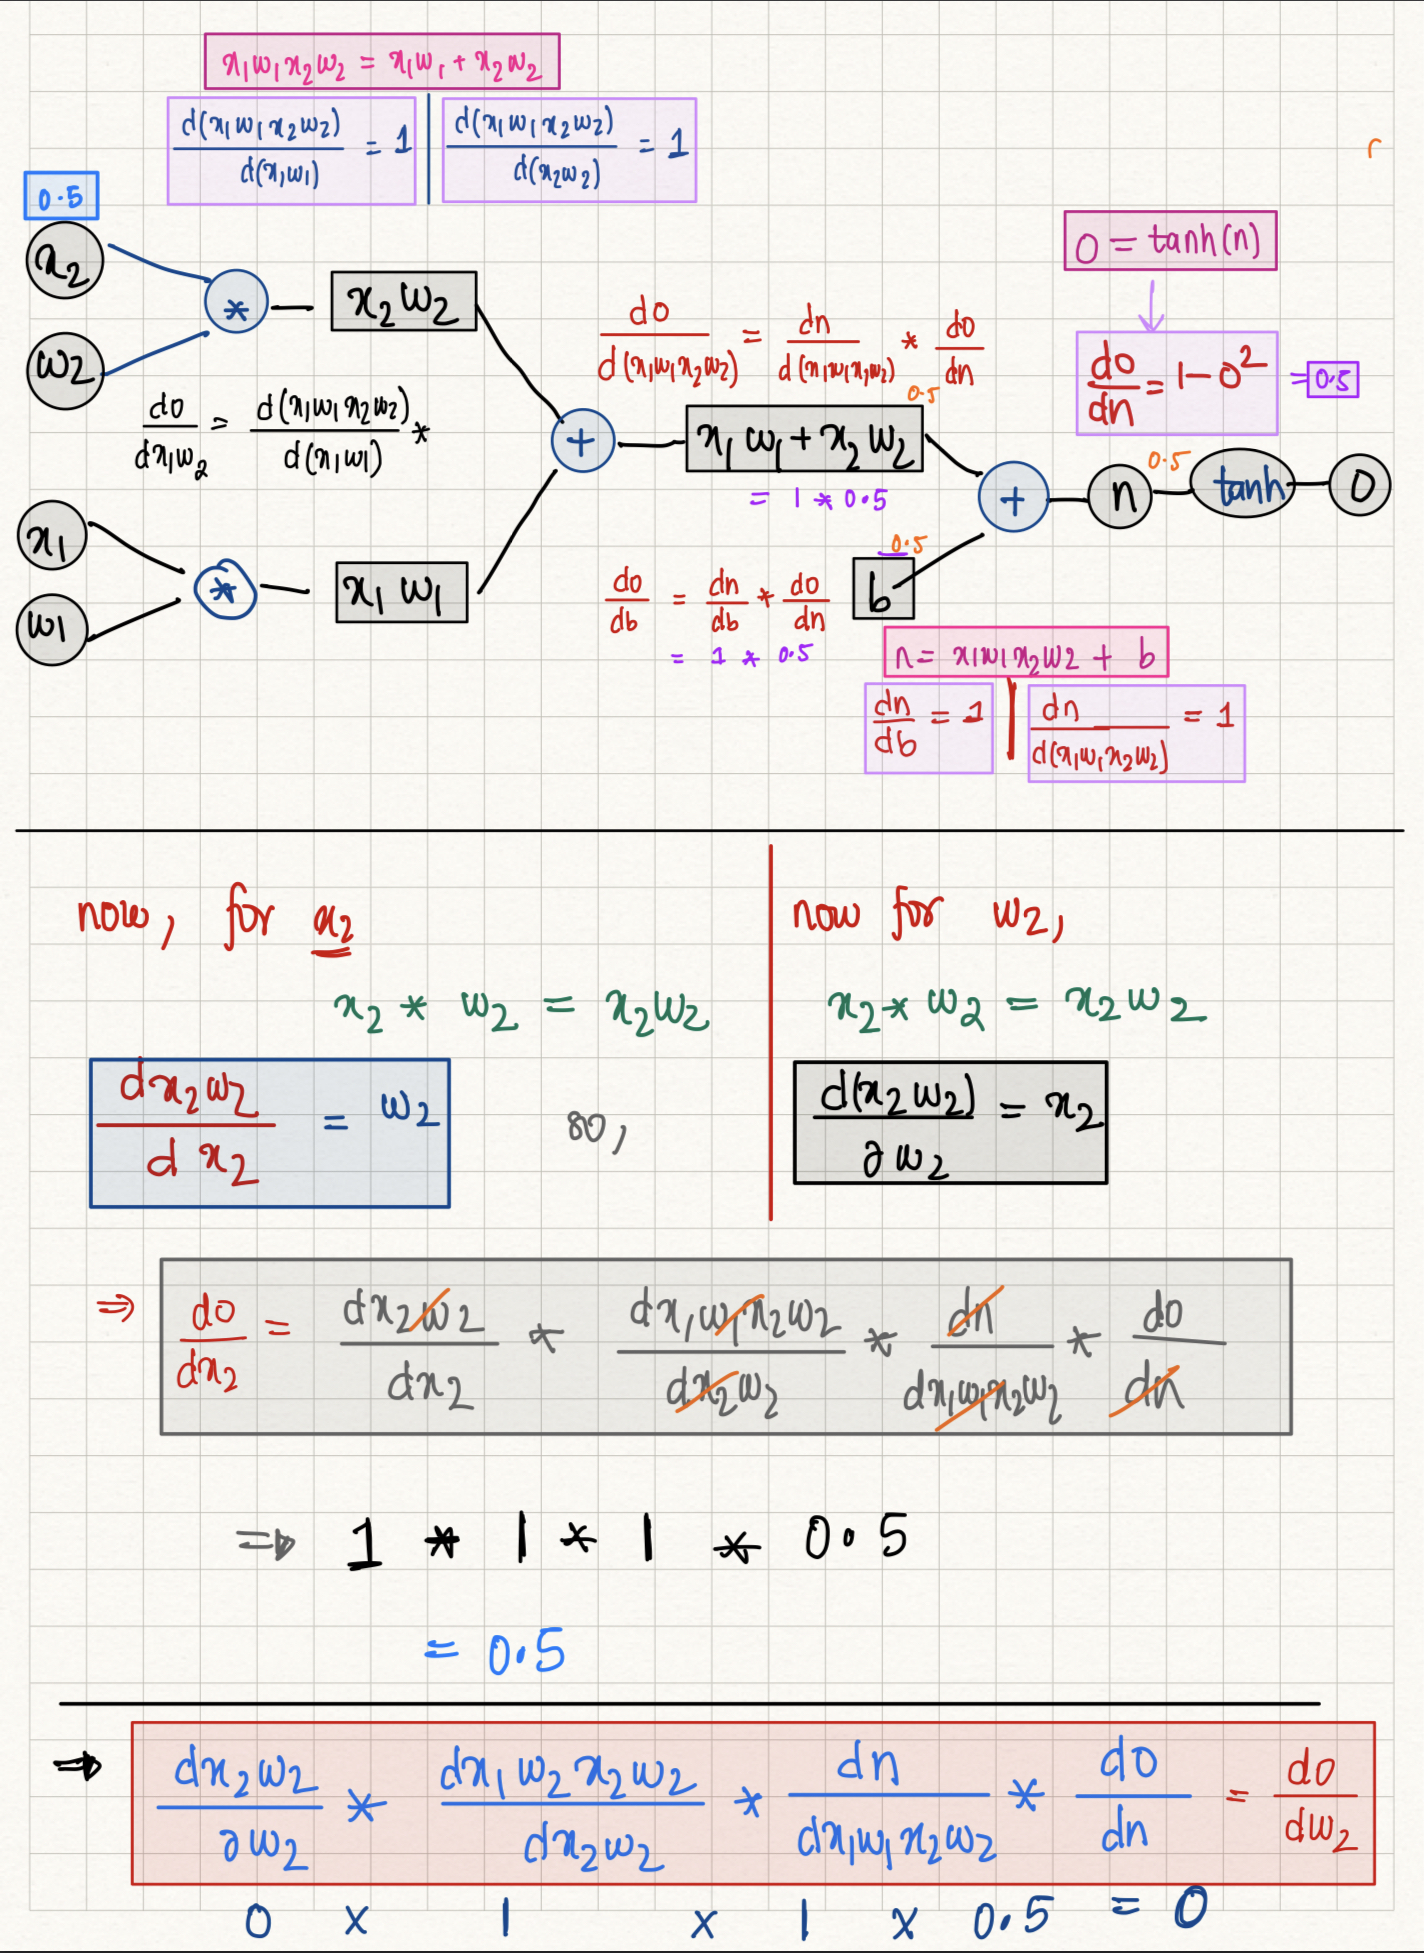 x₁w₁x₂w₂ = x₁w₁ + x₂w₂
d(x₁w₁x₂w₂) / d(x₁w₁) = 1 | d(x₁w₁x₂w₂) / d(x₂w₂) = 1
0.5
x₂
w₂
*
x₂w₂
do / dx₁w₂ = d(x₁w₁x₂w₂) / d(x₁w₁) *
x₁
w₁
*
x₁ w₁
+
do / d(x₁w₁x₂w₂) = dn / d(x₁w₁x₂w₂) * do / dn
0.5
x₁w₁ + x₂w₂
= 1 * 0.5
O = tanh(n)
do / dn = 1 - o² = 0.5
+
n
0.5
tanh
O
0.5
b
do / db = dn / db * do / dn
= 1 * 0.5
n = x₁w₁x₂w₂ + b
dn / db = 1 | dn / d(x₁w₁x₂w₂) = 1
now, for x₂
x₂ * w₂ = x₂w₂
dx₂w₂ / dx₂ = w₂
so,
now for w₂,
x₂ * w₂ = x₂w₂
d(x₂w₂) / ∂w₂ = x₂
⇒ do / dx₂ = dx₂w₂ / dx₂ * dx₁w₁x₂w₂ / dx₂w₂ * dn / dx₁w₁x₂w₂ * do / dn
⇒ 1 * 1 * 1 * 0.5
= 0.5
⇒ dx₂w₂ / ∂w₂ * dx₁w₂x₂w₂ / dx₂w₂ * dn / dx₁w₁x₂w₂ * do / dn = do / dw₂
0 x 1 x 1 x 0.5 = 0